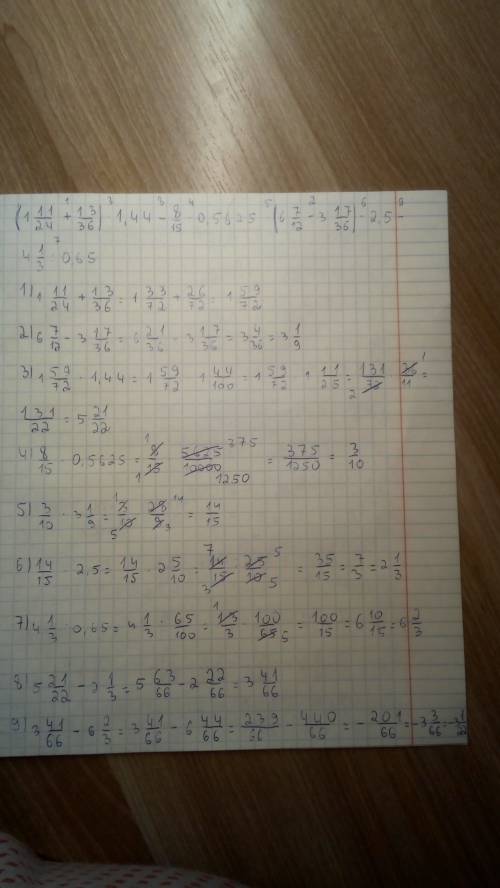 (1 11/24 + 13/36) 1,44 - 8/15 0,5625 (6 7/12 - 3 17/36) 2,5 -
4 1/3 0,65
1) 1 11/24 + 13/36 = 1 33/72 + 26/72 = 1 59/72
2) 6 7/12 - 3 17/36 = 6 21/36 - 3 17/36 = 3 4/36 = 3 1/9
3) 1 59/72 1,44 = 1 59/72 1 44/100 = 1 59/72 1 11/25 = 131/72 36/11 =
131/22 = 5 21/22
4) 8/15 · 0,5625 = 8/15 5625/10000 = 375/1250 = 3/10
5) 3/10 · 3 1/9 = 3/10 28/9 = 14/15
6) 14/15 2,5 = 14/15 · 2 5/10 = 14/15 · 25/10 = 35/15 = 7/3 = 2 1/3
7) 4 1/3 0,65 = 4 1/3 65/100 = 13/3 · 100/65 = 100/15 = 6 10/15 = 6 2/3
8) 5 21/22 - 2 1/3 = 5 63/66 - 2 22/66 = 3 41/66
9) 3 41/66 - 6 2/3 = 3 41/66 - 6 44/66 = 239/66 - 440/66 = - 201/66 = -3 3/66 = -3 1/22